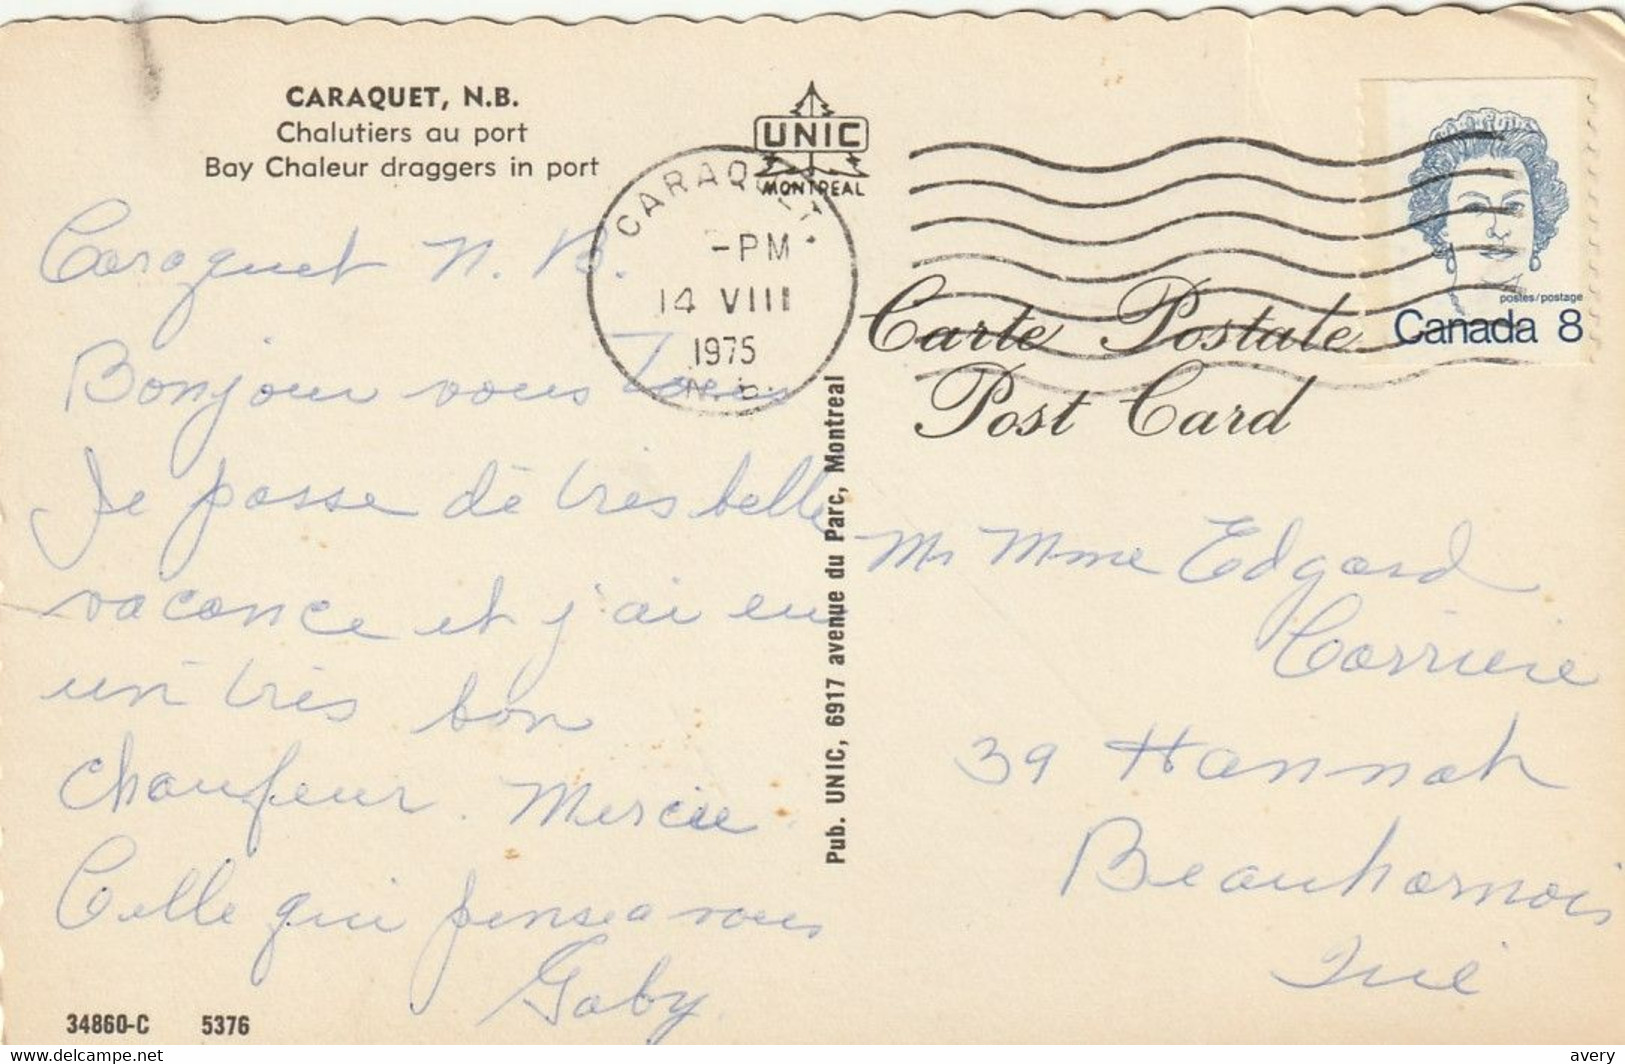 CARAQUET, N.B.
Chalutiers au port
Bay Chaleur draggers in port
UNIC
MONTREAL
CARAQUET
-PM
14 VIII
1975
N.B.
postes/postage
Canada 8
Carte Postale
Post Card
Caraquet N. B.
Bonjour vous Tous
Je passe de très belle
vacance et j'ai eu
un très bon
chaufeur. Mercie
Celle qui pense a vous
Gaby
Pub. UNIC, 6917 avenue du Parc, Montreal
Mr Mme Edgard
Carriere
39 Hannah
Beauharnois
Qué
34860-C 5376
delcampe.net
avery